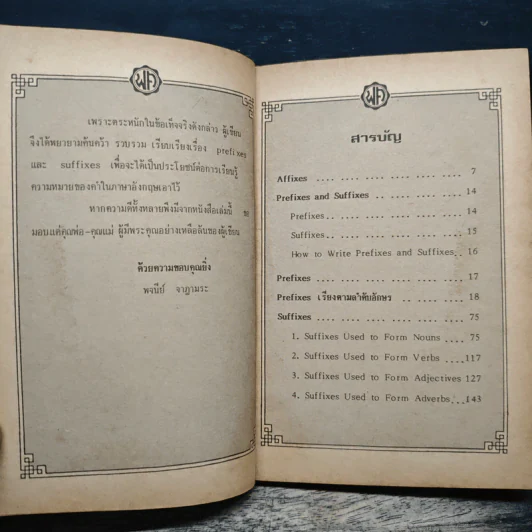 เพราะตระหนักในข้อเท็จจริงดังกล่าว ผู้เขียน
จึงได้พยายามค้นคว้า รวบรวม เรียบเรียงเรื่อง prefixes
และ suffixes เพื่อจะได้เป็นประโยชน์ต่อการเรียนรู้
ความหมายของคำในภาษาอังกฤษเอาไว้
หากความดีทั้งหลายพึงมีจากหนังสือเล่มนี้ ขอ
มอบแด่คุณพ่อ-คุณแม่ ผู้มีพระคุณอย่างเหลือล้นของผู้เขียน
ด้วยความขอบคุณยิ่ง
พจนีย์
สารบัญ
Affixes .... .... .... .... .... .... .... 7
Prefixes and Suffixes .. .... .... .... 14
Prefixes.. .... .... .... .... .... .... 14
Suffixes.. .... .... .... .... .... .... 15
How to Write Prefixes and Suffixes.. 16
Prefixes .... .... .... .... .... .... .... 17
Prefixes เรียงตามลำดับอักษร .. .... .... 18
Suffixes .... .... .... .... .... .... .... 75
1. Suffixes Used to Form Nouns .... 75
2. Suffixes Used to Form Verbs ....117
3. Suffixes Used to Form Adjectives 127
4. Suffixes Used to Form Adverbs....143